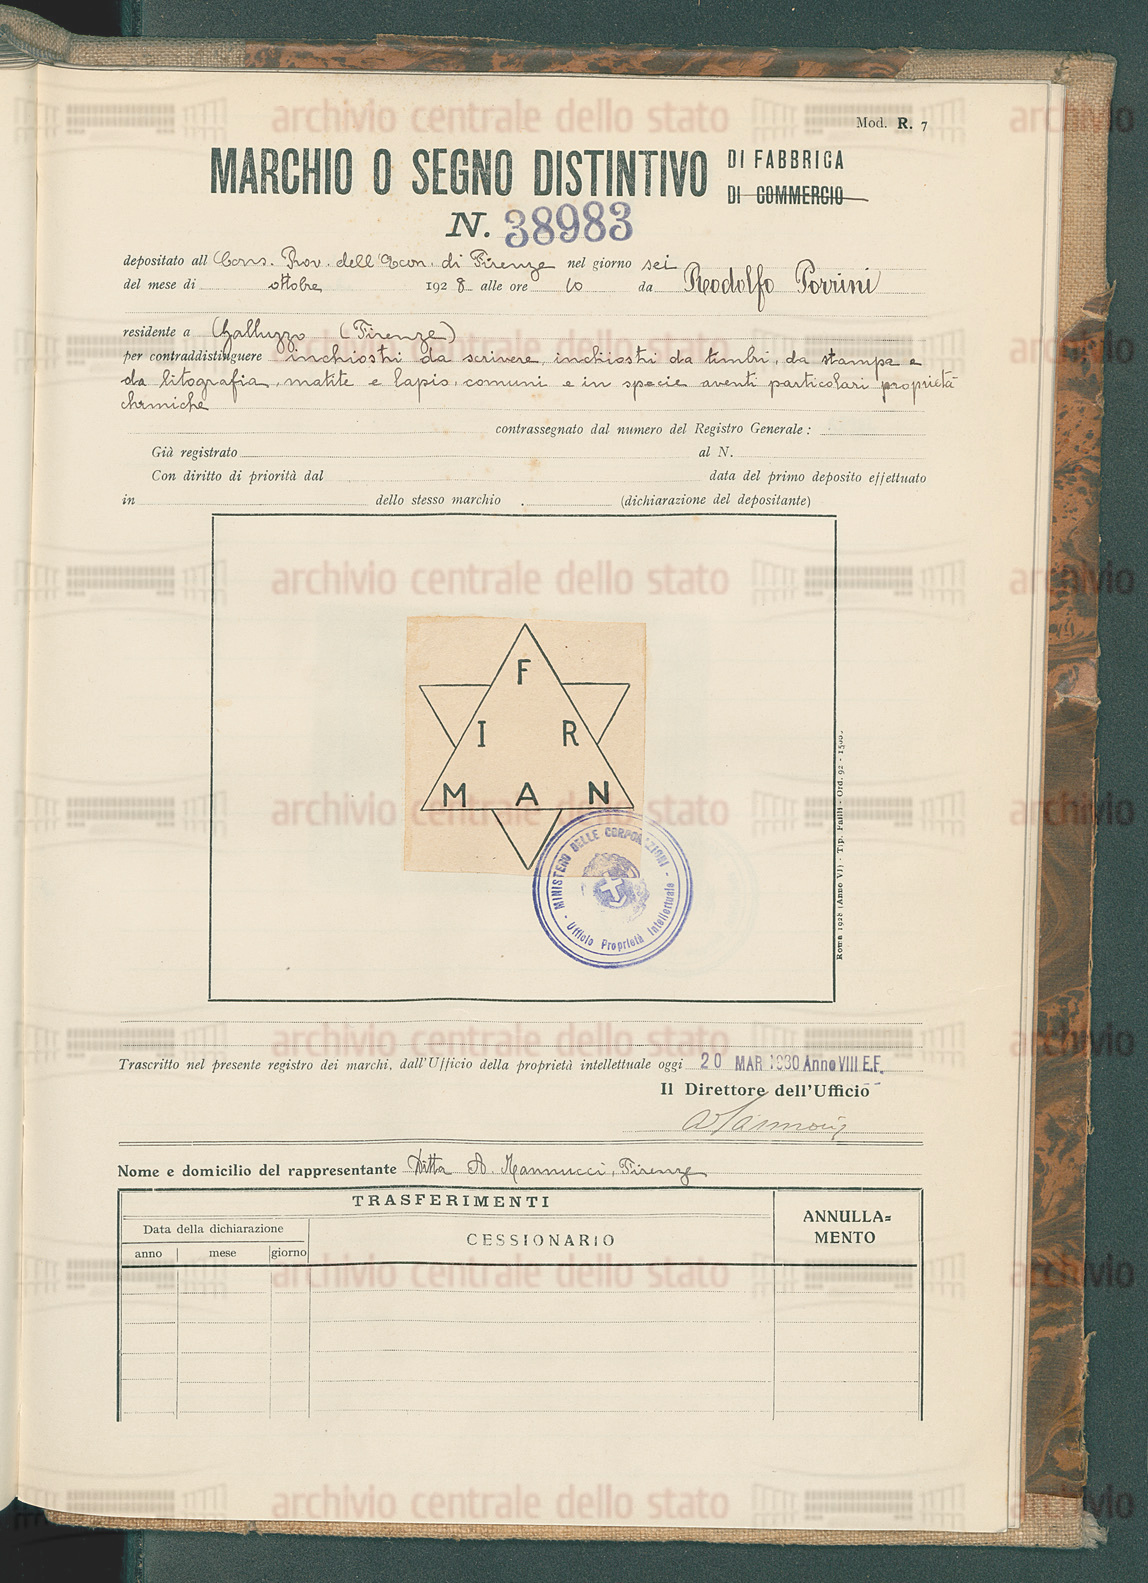 Mod. R. 7
MARCHIO O SEGNO DISTINTIVO DI FABBRICA
DI COMMERCIO
N. 38983
depositato all Cons. Prov. dell'Econ. di Firenze nel giorno sei
del mese di ottobre 1928 alle ore 10 da Rodolfo Porrini
residente a Galluzzo (Firenze)
per contraddistinguere inchiostri da scrivere, inchiostri da timbri, da stampa e
da litografia, matite e lapis, comuni e in specie aventi particolari proprietà
chimiche
contrassegnato dal numero del Registro Generale :
Già registrato al N.
Con diritto di priorità dal data del primo deposito effettuato
in dello stesso marchio (dichiarazione del depositante)
F
I R
M A N
MINISTERO DELLE CORPORAZIONI
Ufficio Proprietà Intellettuale
Roma 1928 (Anno VI) - Tip. Failli - Ord. 92 -
Trascritto nel presente registro dei marchi, dall'Ufficio della proprietà intellettuale oggi 20 MAR 1930 Anno VIII E.F.
Il Direttore dell'Ufficio
Nome e domicilio del rappresentante Ditta A. Mannucci, Firenze
TRASFERIMENTI
ANNULLA=
MENTO
Data della dichiarazione
CESSIONARIO
anno mese giorno
archivio centrale dello stato